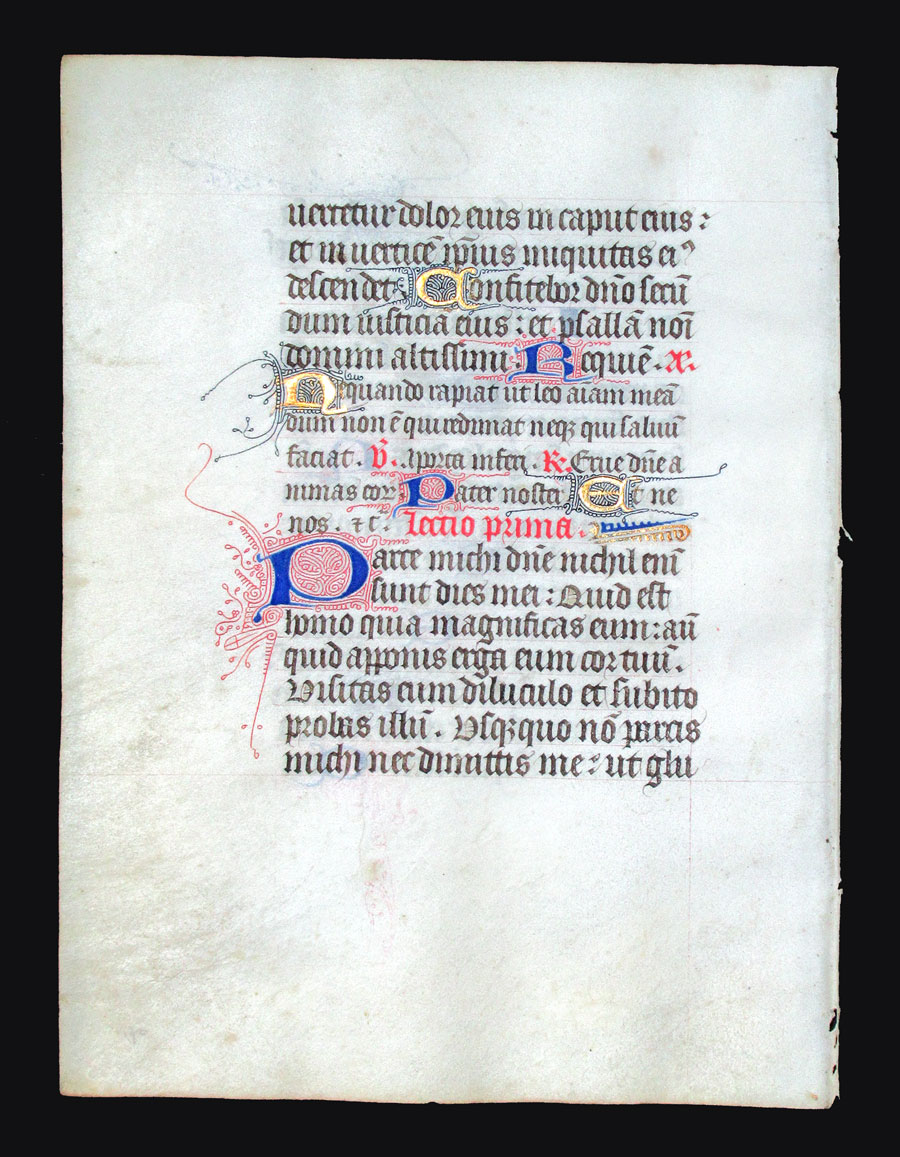 uertetur dolor eius in caput eius:
et in uerticē ip̄ius iniquitas eiꝰ
descendet. Confitebor dn̄o secū
dum iusticiā eius: et psallā noī
domini altissimi. Requiē. A.
Nequando rapiat ut leo aīam meā
dum non ē qui redimat neqꝫ qui saluū
faciat. V̄. Aporta inferi. R. Erue dn̄e a
nimas eoꝝ Pater noster Et ne
nos. ⁊c. Lectio prima.
Parce michi dn̄e nichil enī
sunt dies mei: Quid est
homo quia magnificas eum: aū
quid apponis erga eum cor tuū.
Visitas eum diluculo et subito
probas illū. Vsqꝫquo nō parcis
michi nec dimittis me: ut glu